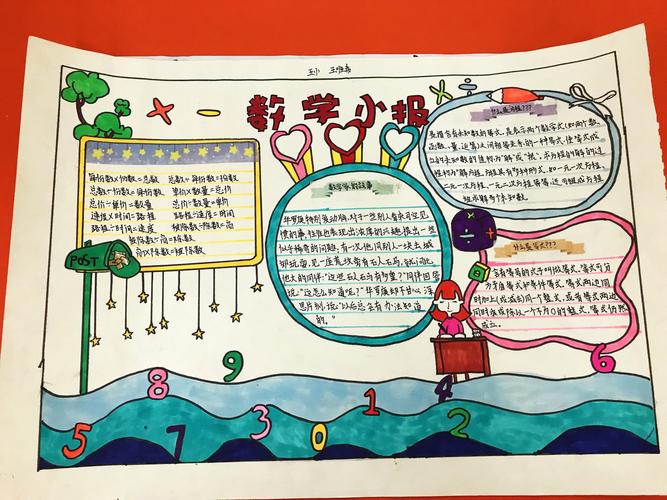 数学小报
每份数×份数=总数 总数÷每份数=份数
总数÷份数=每份数 单价×数量=总价
总价÷单价=数量 总价÷数量=单价
速度×时间=路程 路程÷速度=时间
路程÷时间=速度 被除数÷除数=商
被除数÷商=除数
商×除数=被除数
POST
数学家的故事
华罗庚特别爱动脑,对于一些别人看来司空见
惯的事,往往也表现出浓厚的兴趣,提出一些
似乎稀奇的问题,有一次,他同别人一块去城
郊玩,
见一座荒坟旁有石人石马,就问比
他大的同伴:“这些石人石马有多重?”同伴回答
说:“这怎么知道呢?”华罗庚却不甘心,深
思片刻,说:“以后总会有办法知道
的。”
什么是方程???
是指含有未知数的等式,是表示两个数学式(如两个数、
函数、量、运算)之间相等关系的一种等式,使等式成
立的未知数的值称为“解”或“根”。求方程的解的过
程称为“解方程”。方程具有多种形式,如一元一次方程、
二元一次方程、一元二次方程等等,还可组成方程
组求解多个未知数。
什么是等式???
含有等号的式子叫做等式。等式可分
为矛盾等式和条件等式。等式两边同
时加上(或减去)同一个整式,或者等式两边
同时乘或除以一个不为0的整式,等式仍然
成立。
9
8
6
4
1
3
2
0
5
7